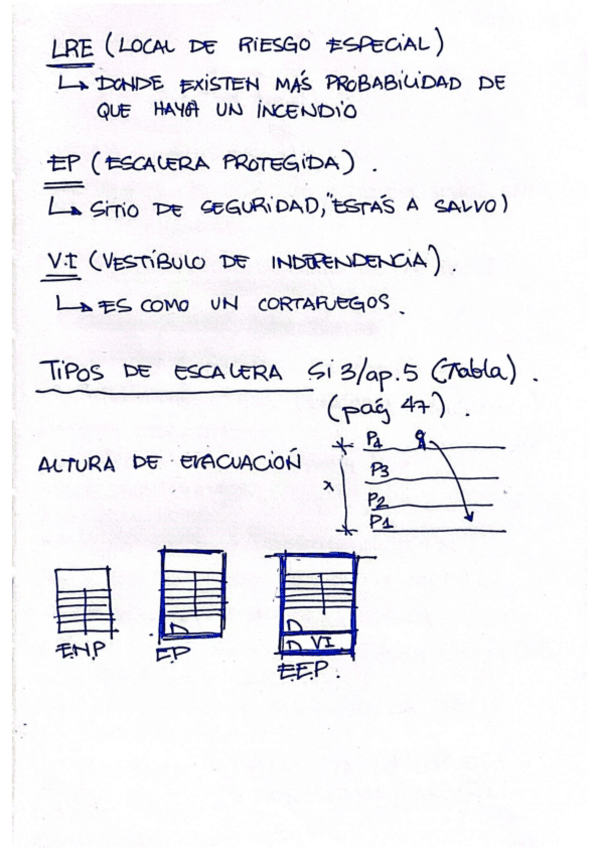 LRE (LOCAL DE RIESGO ESPECIAL)
↳ DONDE EXISTEN MÁS PROBABILIDAD DE
QUE HAYA UN INCENDIO
EP (ESCALERA PROTEGIDA).
↳ SITIO DE SEGURIDAD, "ESTÁS A SALVO)
V.I (VESTÍBULO DE INDEPENDENCIA).
↳ ES COMO UN CORTAFUEGOS.
TIPOS DE ESCALERA SI 3/ap.5 (Tabla).
(pág 47).
ALTURA DE EVACUACIÓN
P4
P3
x
P2
P1
VI
E.N.P
EP
E.E.P.